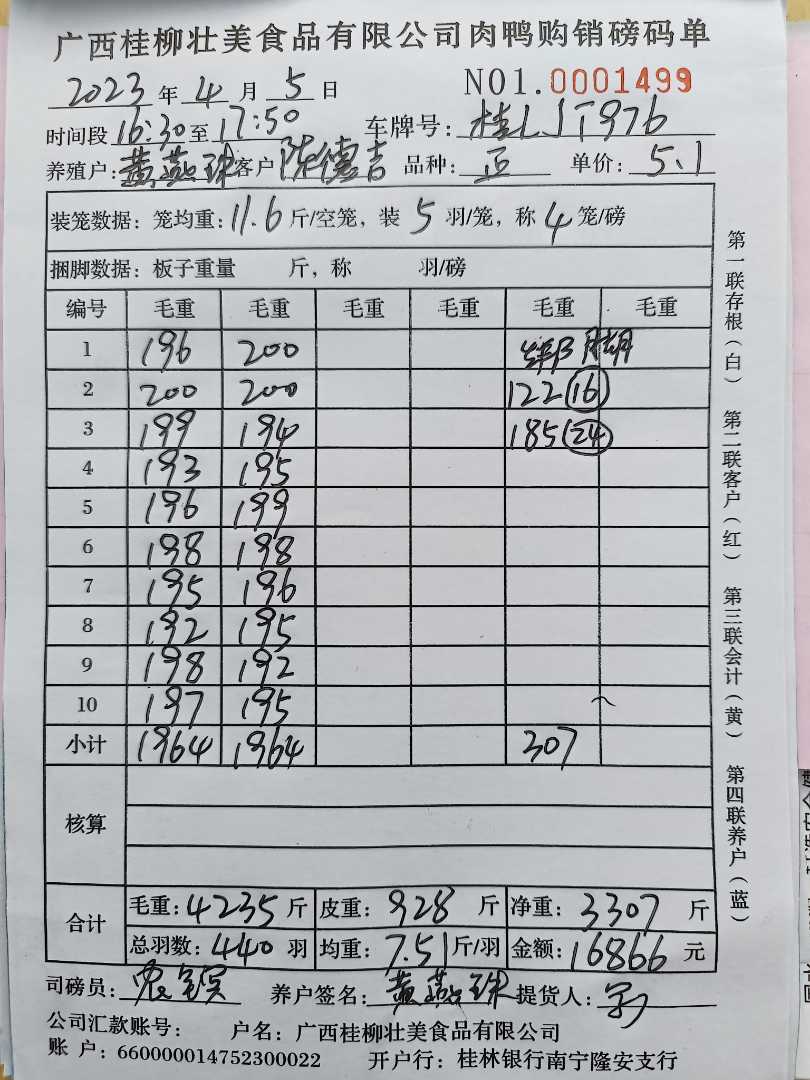 广西桂柳壮美食品有限公司肉鸭购销磅码单
2023年4月5日 NO1.0001499
时间段16:30至17:50 车牌号:桂LJT976
养殖户:黄燕球 客户 陈德吉 品种:正 单价:5.1
装笼数据:笼均重:11.6斤/空笼,装5羽/笼,称4笼/磅
捆脚数据:板子重量 斤,称 羽/磅
编号 毛重 毛重 毛重 毛重 毛重 毛重
1 196 200
2 200 200 122 16
3 199 194 185 24
4 193 195
5 196 199
6 198 198
7 195 196
8 192 195
9 198 192
10 197 195
小计 1964 1964 307
核算
合计 毛重:4235斤 皮重:928斤 净重:3307斤
总羽数:440羽 均重:7.51斤/羽 金额:16866元
司磅员: 养户签名:黄燕球 提货人:
公司汇款账号: 户名:广西桂柳壮美食品有限公司
账 户:660000014752300022 开户行:桂林银行南宁隆安支行
第一联存根(白) 第二联客户(红) 第三联会计(黄) 第四联养户(蓝)